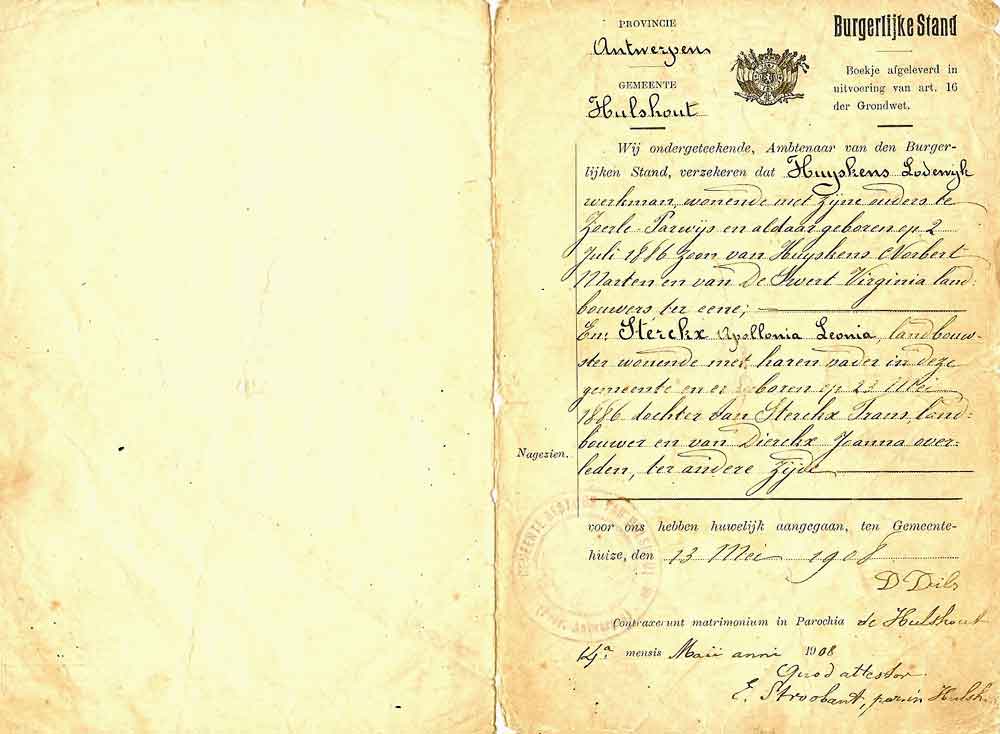 PROVINCIE
Antwerpen
GEMEENTE
Hulshout
Burgerlijke Stand
Boekje afgeleverd in
uitvoering van art. 16
der Grondwet.
Wij ondergeteekende, Ambtenaar van den Burger-
lijken Stand, verzekeren dat Huyskens Lodewijk
werkman, wonende met zijne ouders te
Zoerle-Parwijs en aldaar geboren op 2
Juli 1886 zoon van Huyskens Norbert
Marten en van De Swert Virginia land-
bouwers ter eene;
En: Sterckx Apollonia Leonia, landbouw-
ster wonende met haren vader in deze
gemeente en er geboren op 23 Mei
1886 dochter van Sterckx Frans, land-
bouwer en van Dierckx Joanna over-
leden, ter andere zijde
Nagezien.
voor ons hebben huwelijk aangegaan, ten Gemeente-
huize, den 13 Mei 1908
D Dils
Contraxerunt matrimonium in Parochia de Hulshout
14a mensis Maii anni 1908
Quod attestor
E. Stroobant, par. in Hulsh.